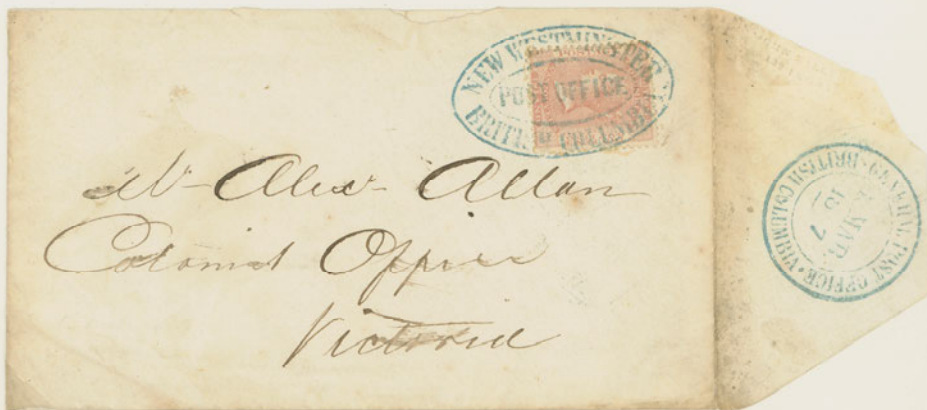 NEW WESTMINSTER
POST OFFICE
BRITISH COLUMBIA
Mr Alex Allan
Colonist Office
Victoria
GENERAL POST OFFICE · VICTORIA · BRITISH COLUMBIA
MAR
7